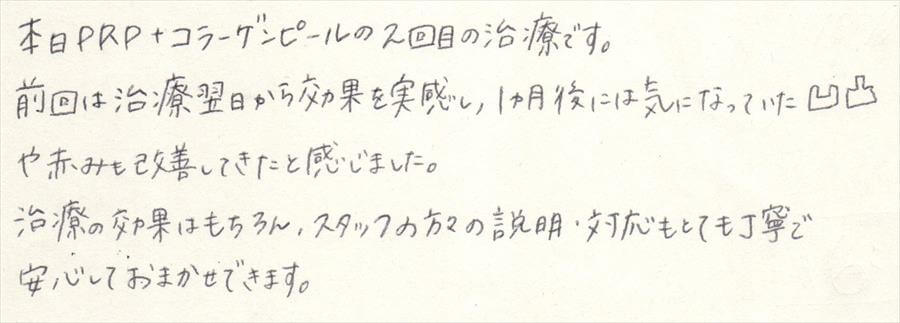 本日PRP+コラーゲンピールの2回目の治療です。
前回は治療翌日から効果を実感し,1ヵ月後には気になっていた凹凸
や赤みも改善してきたと感じました。
治療の効果はもちろん,スタッフの方々の説明・対応もとても丁寧で
安心しておまかせできます。